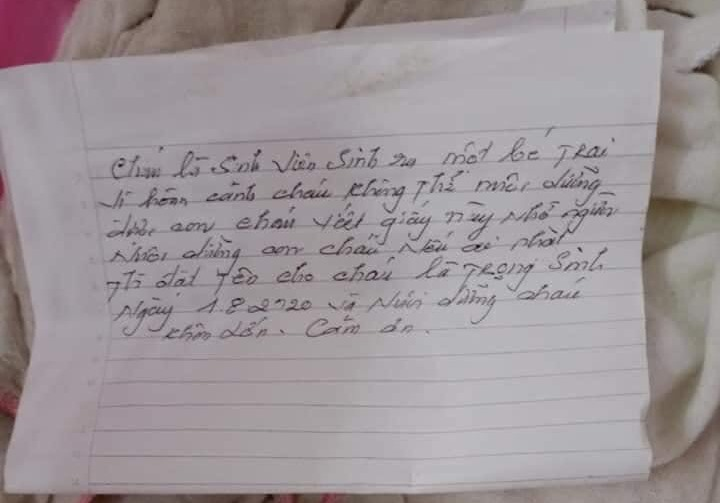 Cháu là Sinh Viên Sinh ra một bé Trai
Vì hoàn cảnh cháu không Thể nuôi dưỡng
được con cháu viết giấy này nhờ người
Nuôi dưỡng con cháu Nếu ai nhận
Thì đặt Tên cho cháu là Trọng Sinh
Ngày 1.8.2020 và Nuôi dưỡng cháu
khôn lớn. Cảm ơn.